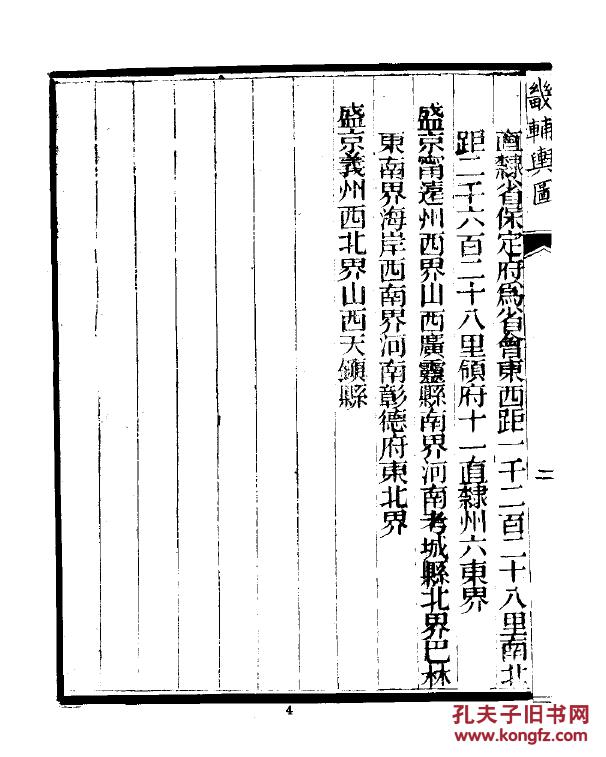 畿輔輿圖
二
直隸省保定府爲省會東西距一千二百二十八里南北
距二千六百二十八里領府十一直隸州六東界
盛京甯遠州西界山西廣靈縣南界河南考城縣北界巴林
東南界海岸西南界河南彰德府東北界
盛京義州西北界山西天鎭縣
4
孔夫子旧书网
www.kongfz.com